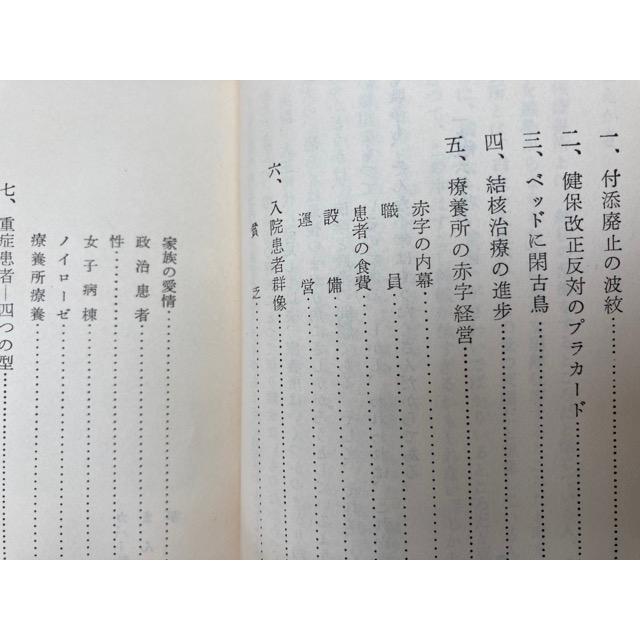 一、付添廃止の波紋
二、健保改正反対のプラカード
三、ベッドに閑古鳥
四、結核治療の進歩
五、療養所の赤字経営
赤字の内幕
職員
患者の食費
設備
運営
六、入院患者群像
貧乏
家族の愛情
政治患者
性
女子病棟
ノイローゼ
療養所療養
七、重症患者―四つの型